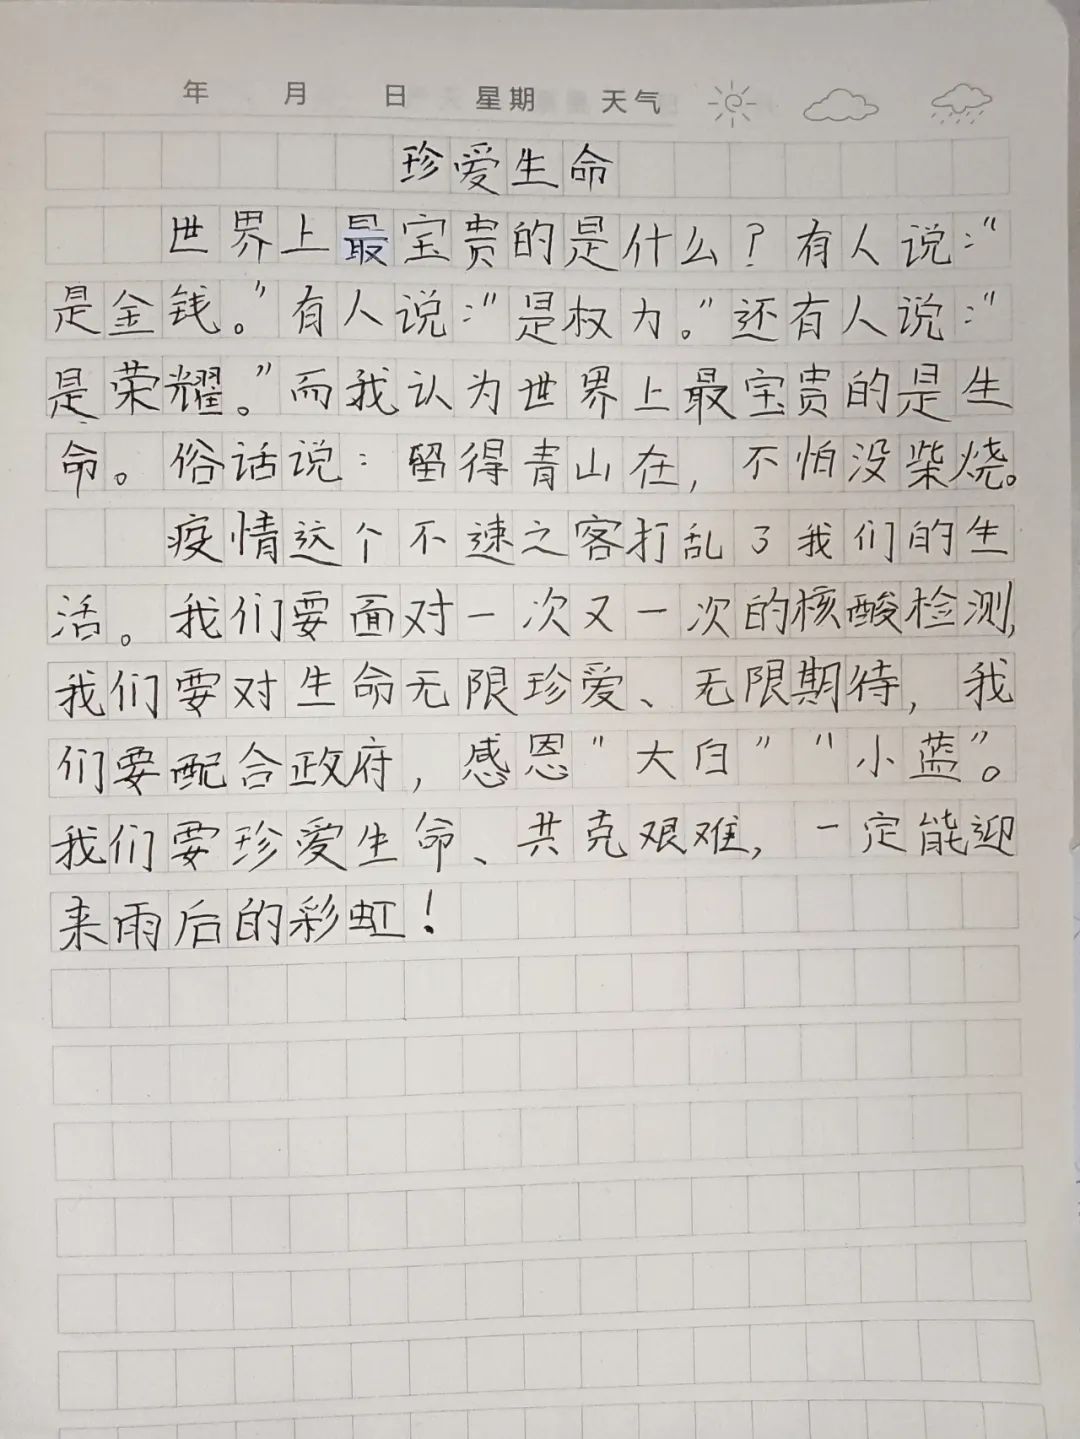 年 月 日 星期 天气
珍爱生命
世界上最宝贵的是什么？有人说：“
是金钱。”有人说：“是权力。”还有人说：“
是荣耀。”而我认为世界上最宝贵的是生
命。俗话说：留得青山在，不怕没柴烧。
疫情这个不速之客打乱了我们的生
活。我们要面对一次又一次的核酸检测，
我们要对生命无限珍爱、无限期待，我
们要配合政府，感恩“大白”“小蓝”。
我们要珍爱生命、共克艰难，一定能迎
来雨后的彩虹！